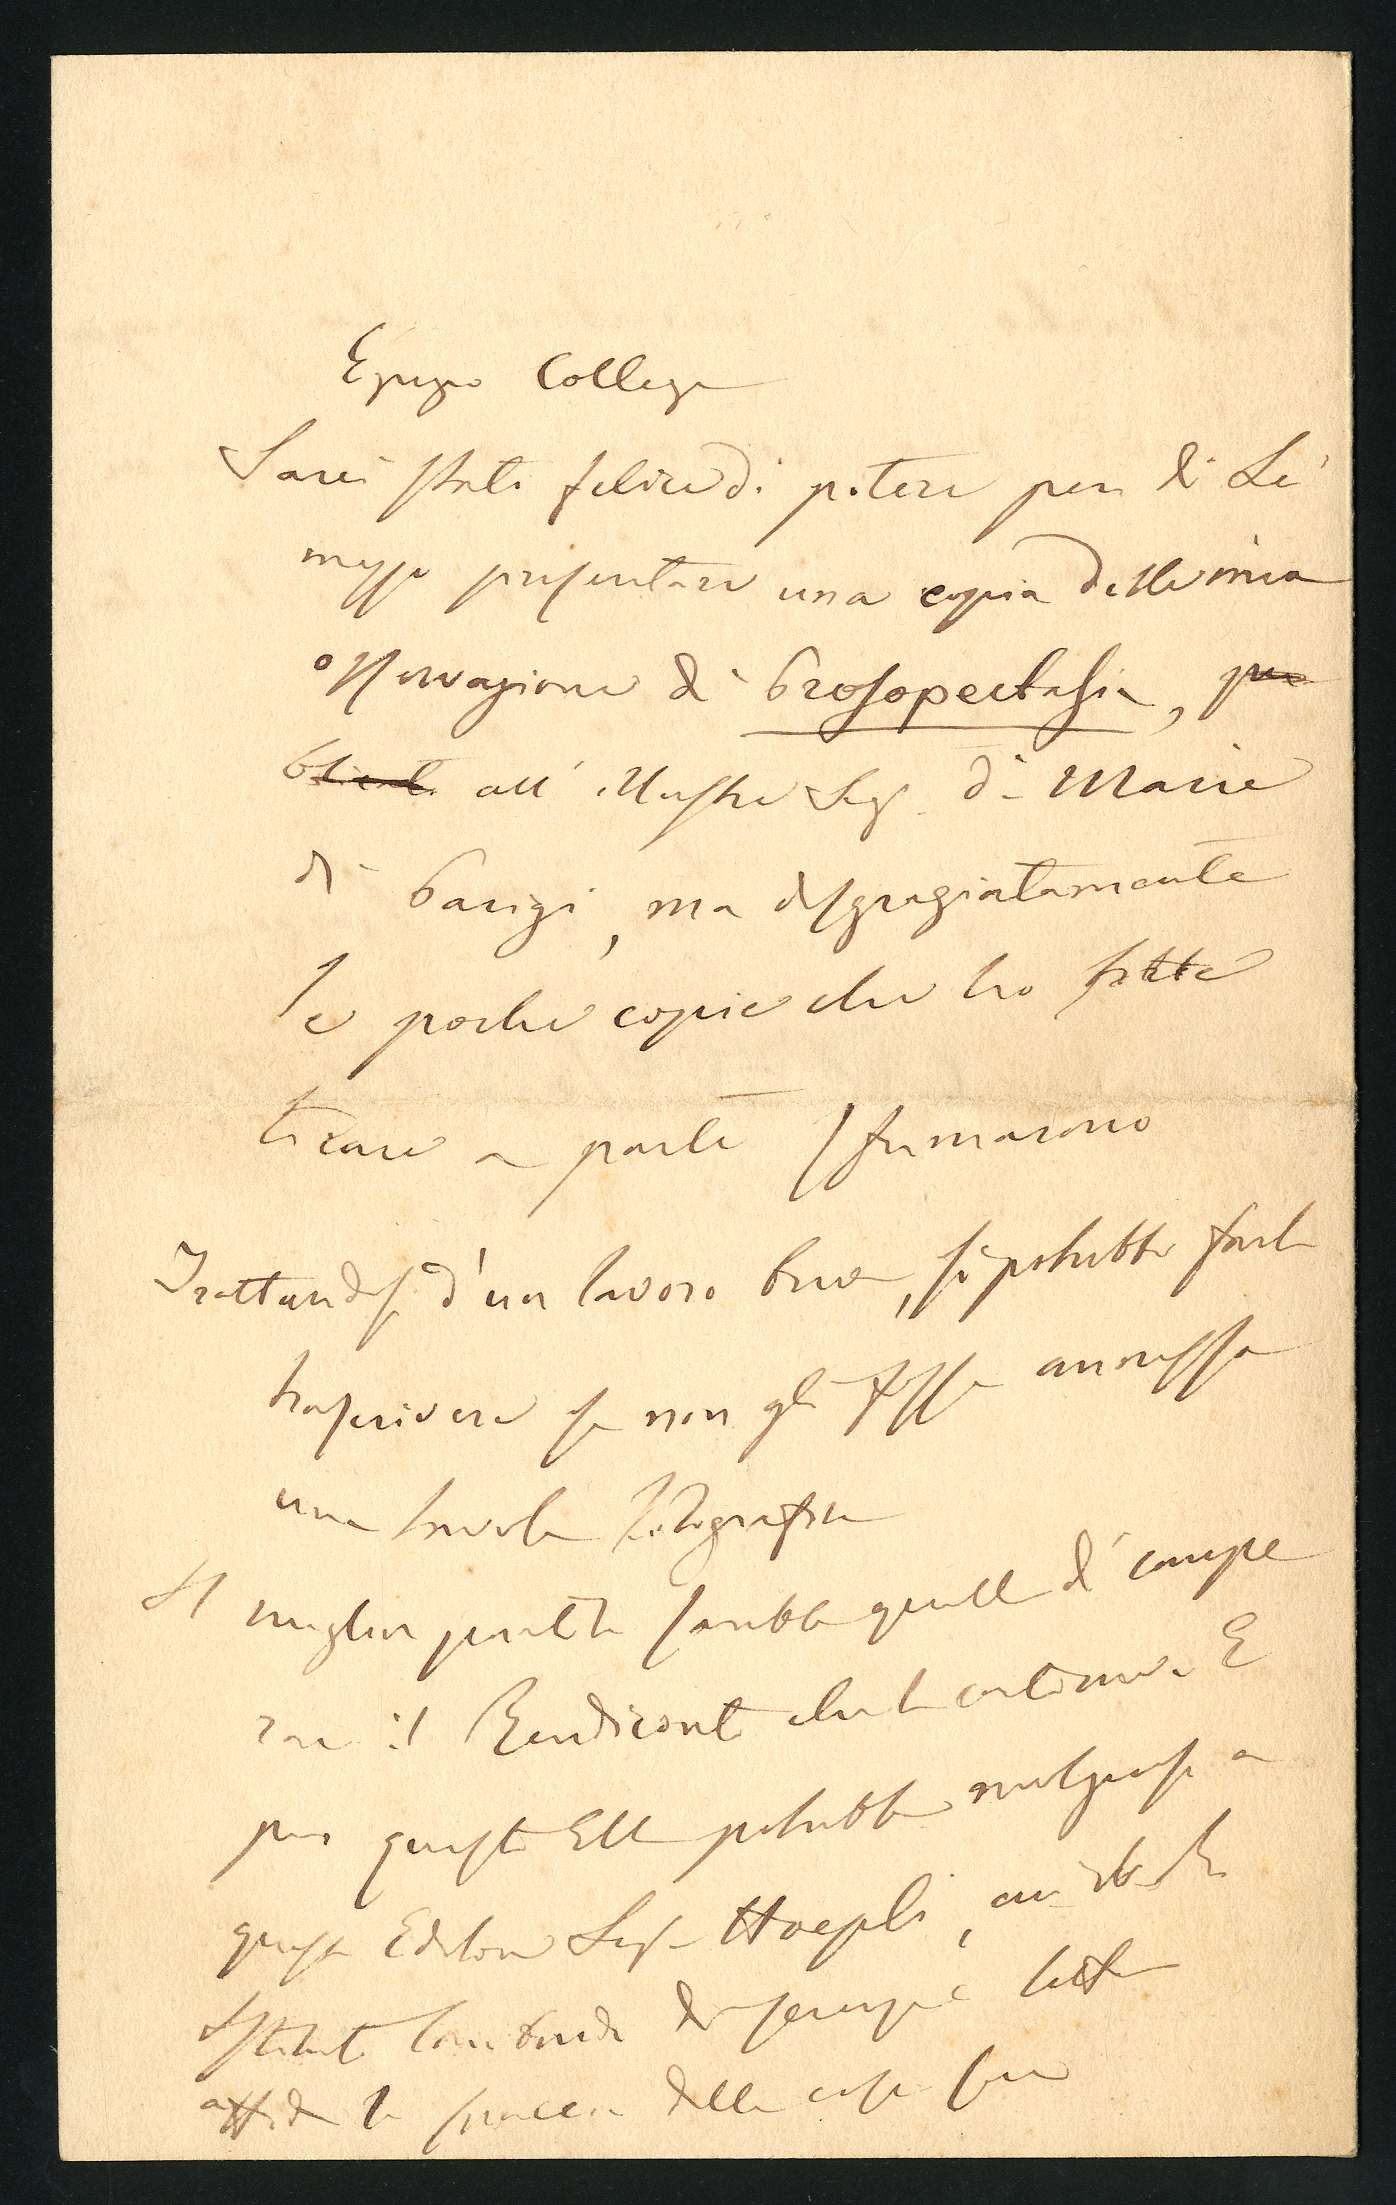 Egregio Collega
Sarei stato felice di potere per di Lei
mezzo presentare una copia della mia
osservazione di Prosopectasia, pu
blicata all' illustre Sig. di Marie
di Parigi, ma disgraziatamente
le poche copie che ho fatte
tirare a parte sfumarono
Trattandosi d'un lavoro breve, si potrebbe farlo
trascrivere se non gli fosse annessa
una tavola litografica
Il miglior partito sarebbe quello di compe
rare il Rendiconto che lo contiene. E
per questo Ella potrebbe rivolgersi a
questo Editore Sig. Hoepli, cui
Istituto Lombardo di scienze e lettere
affida lo spaccio delle cose sue